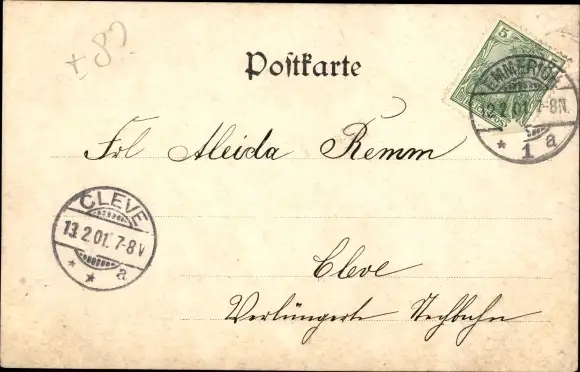 ± 8
Postkarte
5
EMMERICH
12.2.01. 7-8N.
* 1 a
Frl Aleida Remm
CLEVE
13.2.01. 7-8V
* * a
Cleve
Verlüngerte